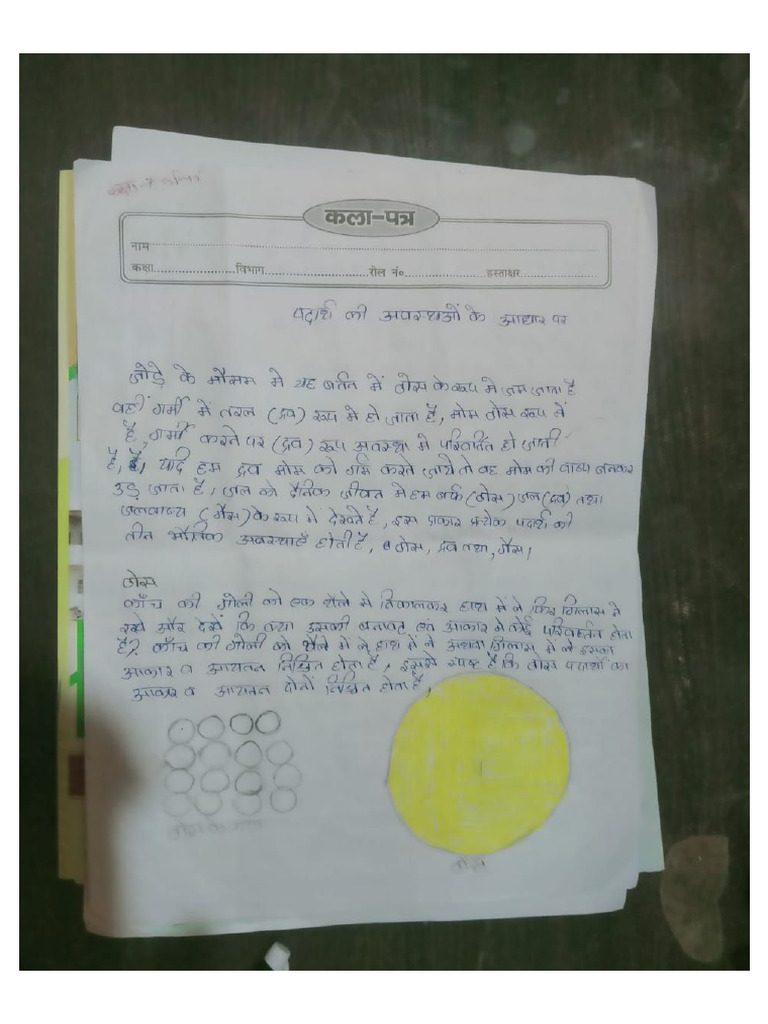 कला-पत्र
नाम
कक्षा विभाग रोल नं० हस्ताक्षर
पदार्थ की अवस्थाओं के आधार पर
जाड़े के मौसम मे यह बर्तन में ठोस के रूप मे जम जाता है
वहीं गर्मी में तरल (द्रव) रूप मे हो जाता है, मोम ठोस रूप में
है, गर्मी करने पर (द्रव) रूप अवस्था मे परिवर्तित हो जाती
है, यदि हम द्रव मोम को गर्म करते जाये तो वह मोम की वाष्प बनकर
उड़ जाता है, जल को दैनिक जीवन मे हम बर्फ (ठोस) जल (द्रव) तथा
जलवाष्प (गैस) के रूप मे देखते है, इस प्रकार प्रत्येक पदार्थ की
तीन भौतिक अवस्थाएँ होती है, ठोस, द्रव तथा, गैस।
ठोस
काँच की गोली को एक थैले से निकालकर हाथ में ले, फिर गिलास मे
रखे और देखें कि क्या उसकी बनावट एवं आकार मे कोई परिवर्तन होता
है? काँच की गोली को थैले में ले हाथ में ले अथवा गिलास में ले इसका
आकार व आयतन निश्चित होता है, इससे स्पष्ट है कि ठोस पदार्थो का
आकार व आयतन दोनों निश्चित होता है,
ठोस के कण
ठोस